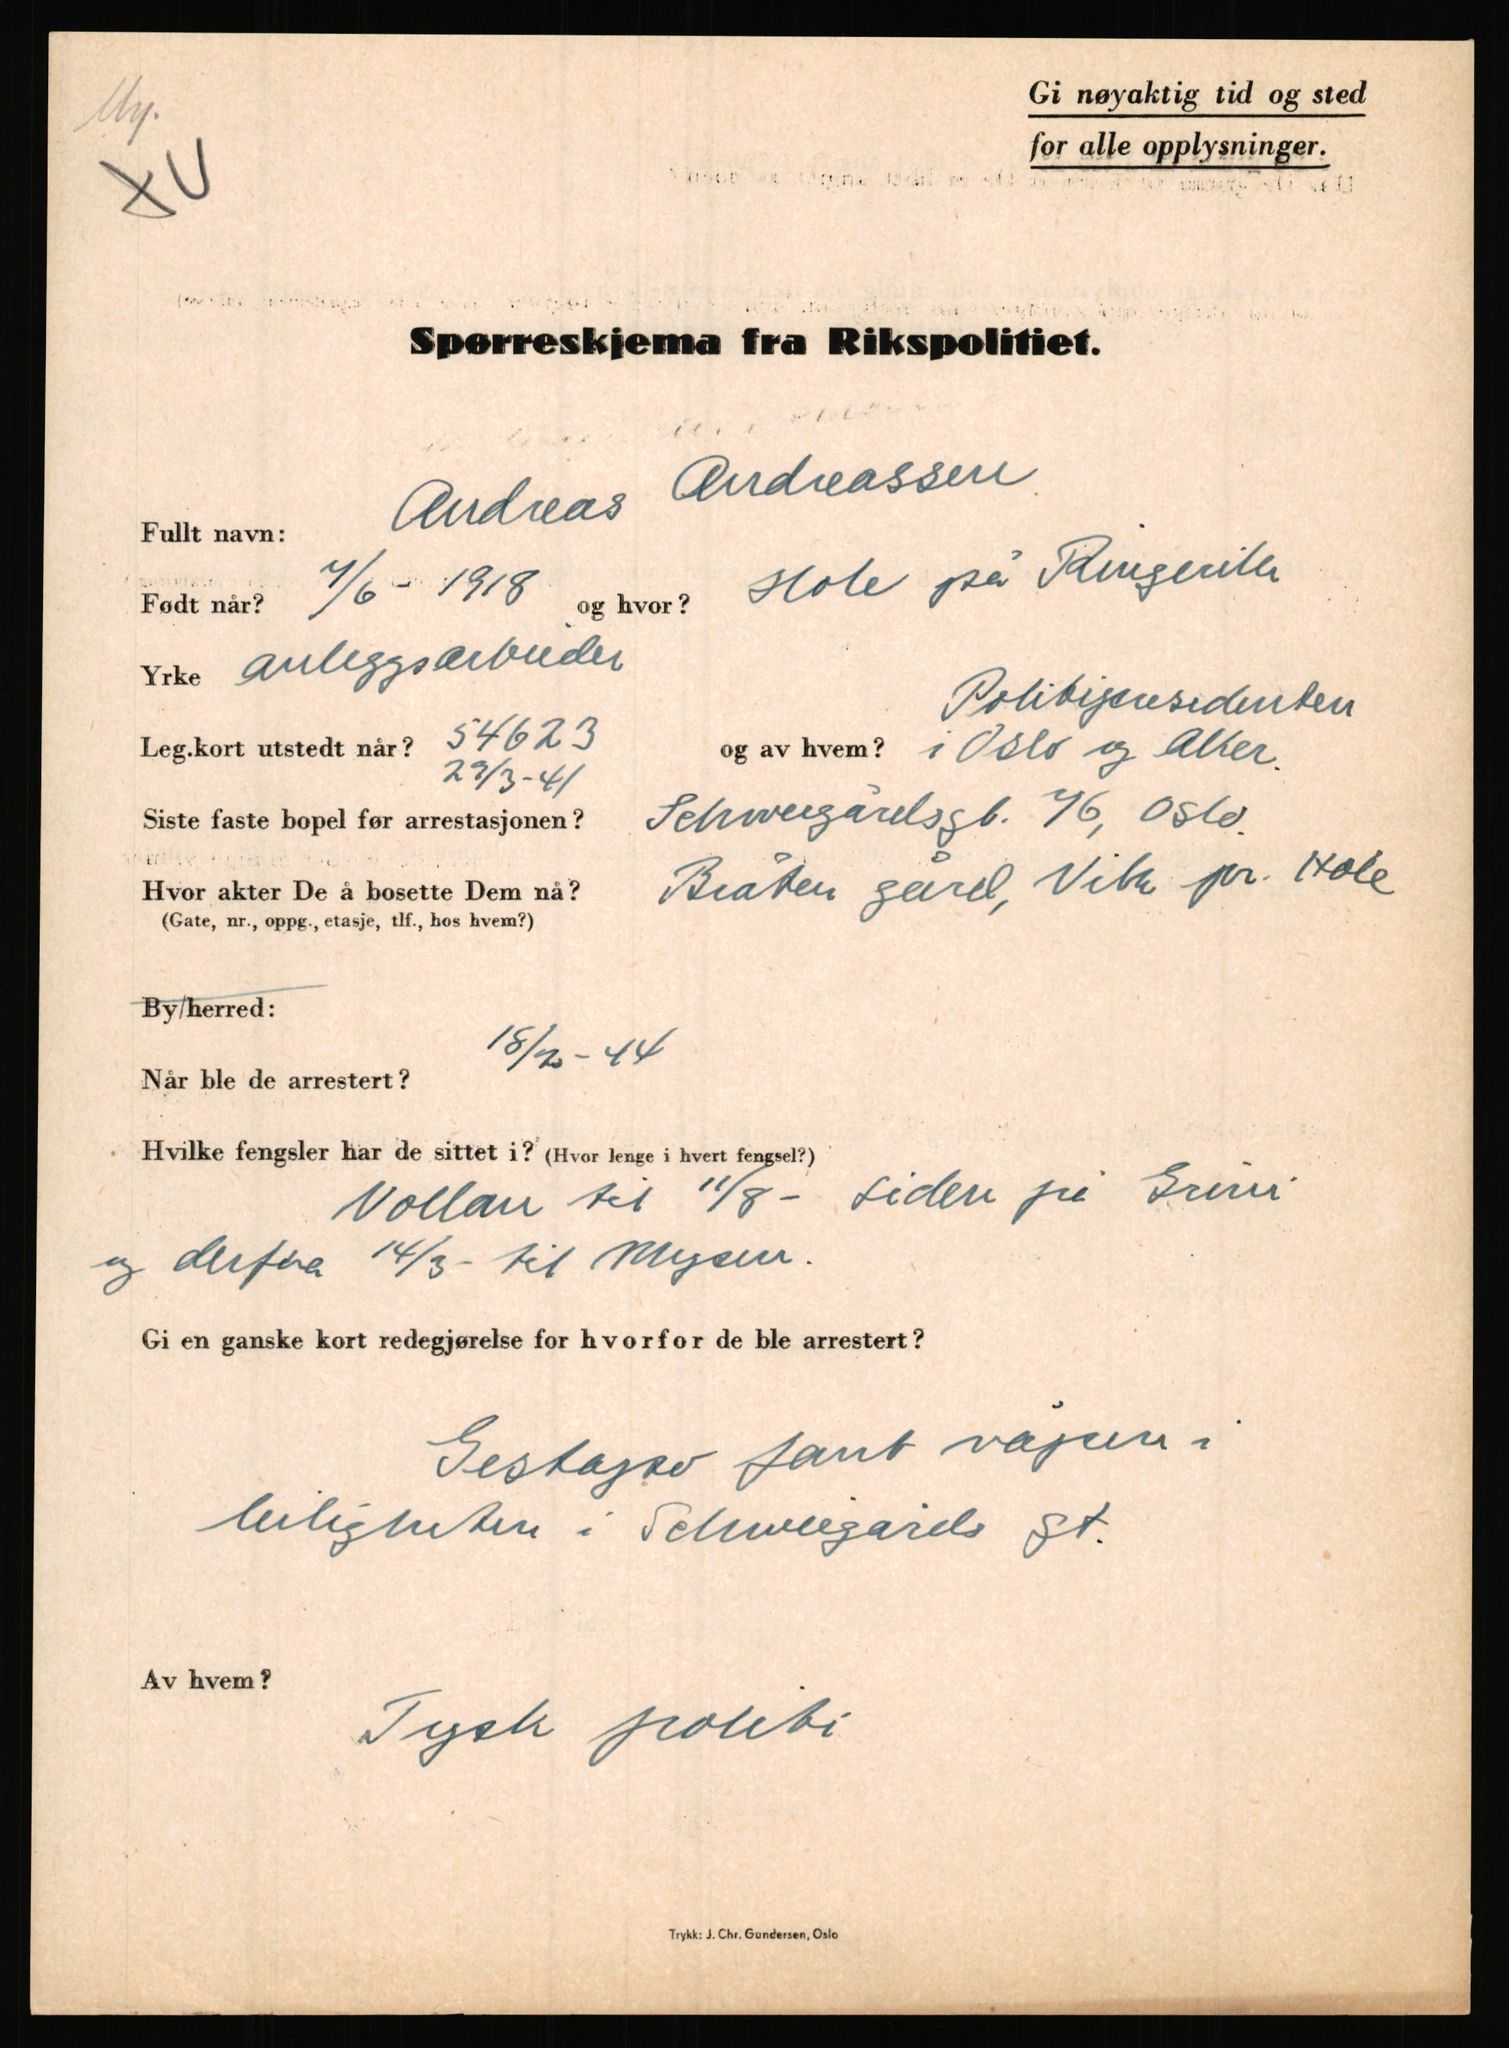 My.
XU
Gi nøyaktig tid og sted
for alle opplysninger.
Spørreskjema fra Rikspolitiet.
Fullt navn: Andreas Andreassen
Født når? 7/6 - 1918 og hvor? Hole på Ringerik
Yrke anleggsarbeider
Politipresidenten
Leg.kort utstedt når? 54623 og av hvem? i Oslo og Aker.
29/3-41
Siste faste bopel før arrestasjonen? Schweigårdsgt. 76, Oslo.
Hvor akter De å bosette Dem nå? Bråten gård, Vik pr. Hole
(Gate, nr., oppg., etasje, tlf., hos hvem?)
By/herred:
Når ble de arrestert? 18/ - 44
Hvilke fengsler har de sittet i? (Hvor lenge i hvert fengsel?)
Vollan til 11/8 - siden på Grini
og derfra 14/3 - til Mysen.
Gi en ganske kort redegjørelse for hvorfor de ble arrestert?
Gestapo fant våpen i
leiligheten i Schweigårds gt.
Av hvem?
Tysk politi
Trykk: J. Chr. Gundersen, Oslo